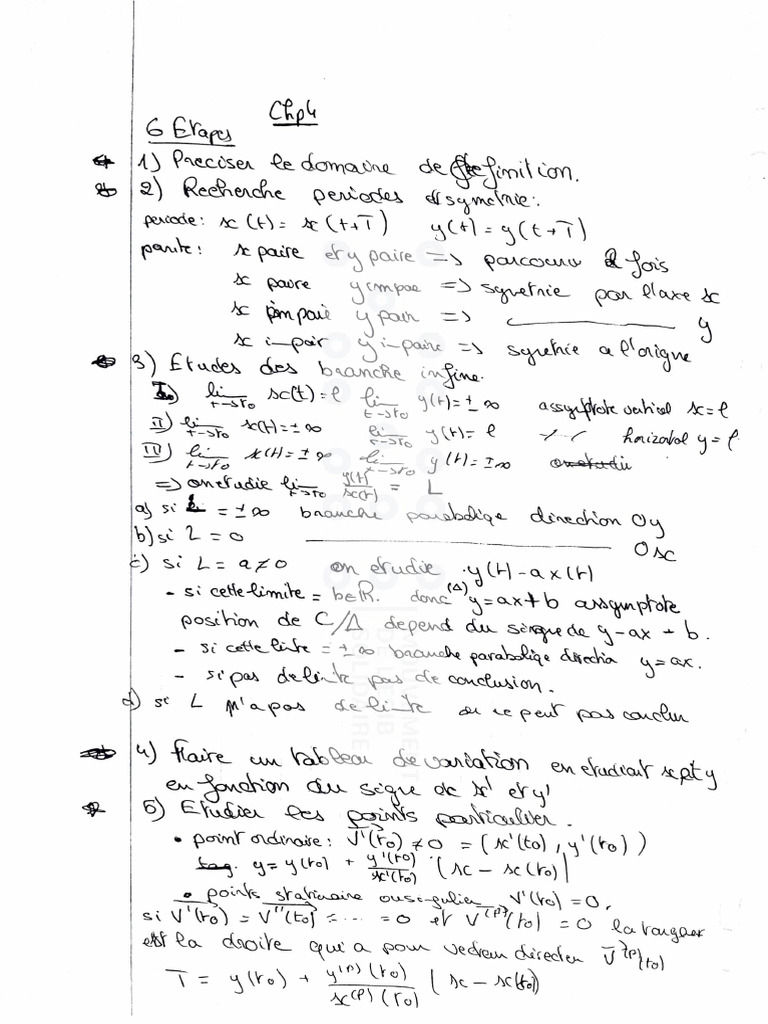 Chp4
6 Etapes
1) Preciser le domaine de definition.
2) Recherche periodes et symetrie.
periode: x(t) = x(t+T) y(t) = y(t+T)
parite: x paire et y paire => parcouru 2 fois
x paire y impae => symetrie par l'axe x
x impaie y pair => ———— y
x i-pair y i-paire => symetrie a l'origne
3) Etudes des branche infine.
I) lim t->t0 x(t) = l lim t->t0 y(t) = ± ∞ assymptote vertical x = l
II) lim t->t0 x(t) = ± ∞ lim t->t0 y(t) = l -/-/- horizontal y = l
III) lim t->t0 x(t) = ± ∞ lim t->t0 y(t) = ± ∞
=> on etudie lim t->t0 y(t)/x(t) = L
a) si L = ± ∞ branche parabolique direction Oy
b) si L = 0 ———— Ox
c) si L = a ≠ 0 on etudie y(t) - a x(t)
- si cette limite = b∈R. donc (Δ) y = ax + b assymptote
position de C/Δ depend du signe de y - ax + b.
- si cette limite = ± ∞ branche parabolique direction y = ax.
- si pas de limite pas de conclusion.
d) si L n'a pas de limite on ne peut pas conclure
4) Faire un tableau de variation en etudiant x et y
en fonction du signe de x' et y'
5) Etudier les points particulier.
• point ordinaire: V'(t0) ≠ 0 = (x'(t0), y'(t0))
tag. y = y(t0) + y'(t0)/x'(t0) (x - x(t0))
• points stationaire ou singulier V'(t0) = 0,
si V'(t0) = V''(t0) = ... = 0 et V^(p)(t0) = 0 la tangente
est la droite qui a pour vecteur directeur V^(p)(t0)
T = y(t0) + y^(p)(t0)/x^(p)(t0) (x - x(t0)